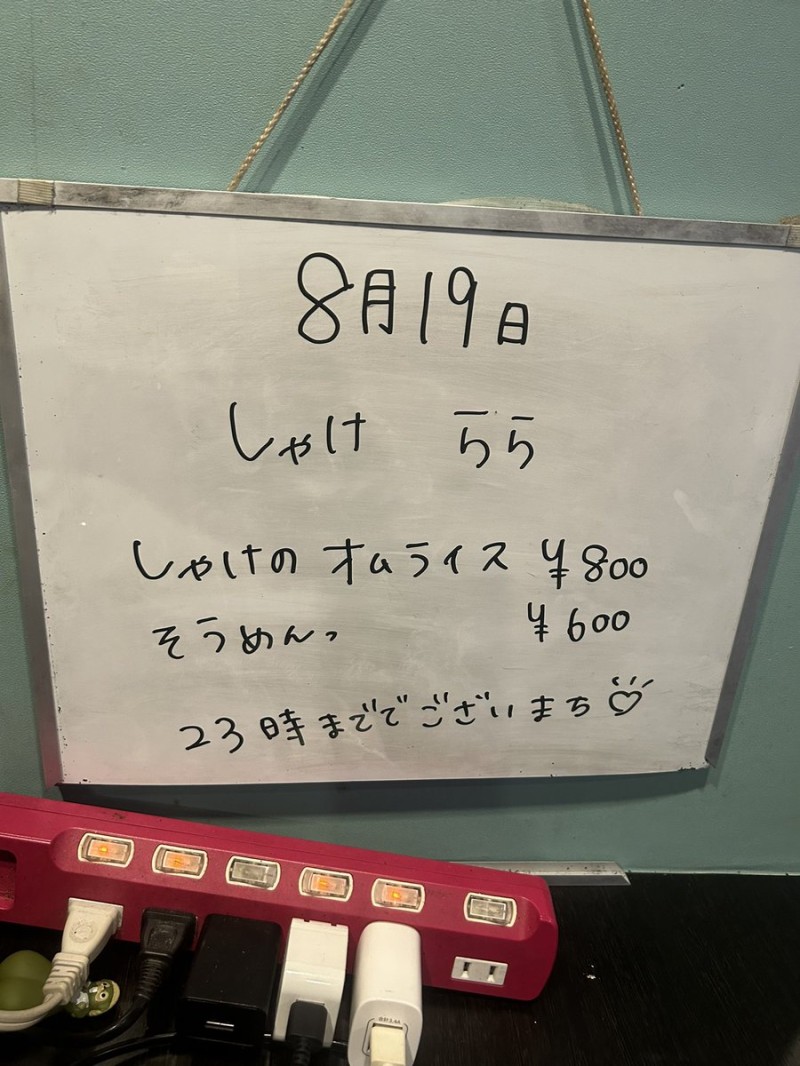 8月19日
しゃけ らら
しゃけの オムライス ¥800
そうめんっ ¥600
23時まででございまち♡